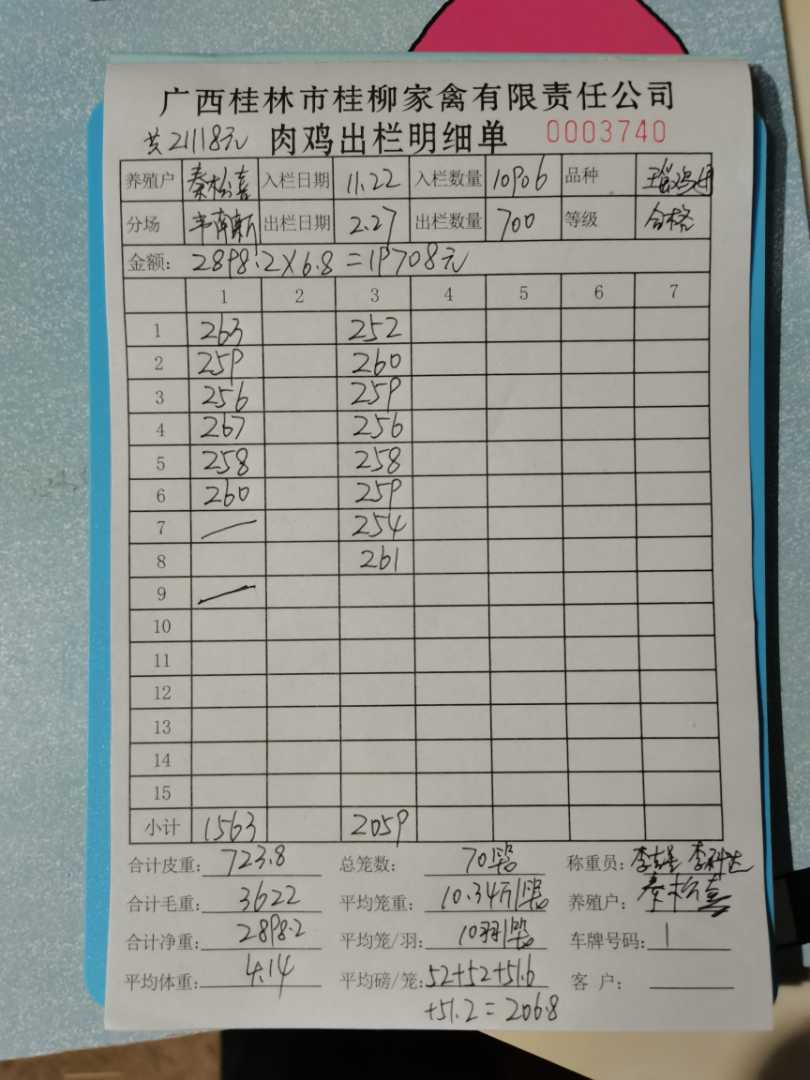 广西桂林市桂柳家禽有限责任公司
共21118元 肉鸡出栏明细单 0003740
养殖户 秦松喜 入栏日期 11.22 入栏数量 10906 品种
分场 出栏日期 2.27 出栏数量 700 等级 合格
金额: 2898.2×6.8=19708元
1 2 3 4 5 6 7
1 263 252
2 259 260
3 256 259
4 267 256
5 258 258
6 260 259
7 254
8 261
9
10
11
12
13
14
15
小计 1563 2059
合计皮重: 723.8 总笼数: 70 称重员:
合计毛重: 3622 平均笼重: 10.34斤/ 养殖户: 秦松喜
合计净重: 2898.2 平均笼/羽: 10羽/ 车牌号码:
平均体重: 4.14 平均磅/笼: 52+52+51.6 客 户:
+51.2=206.8